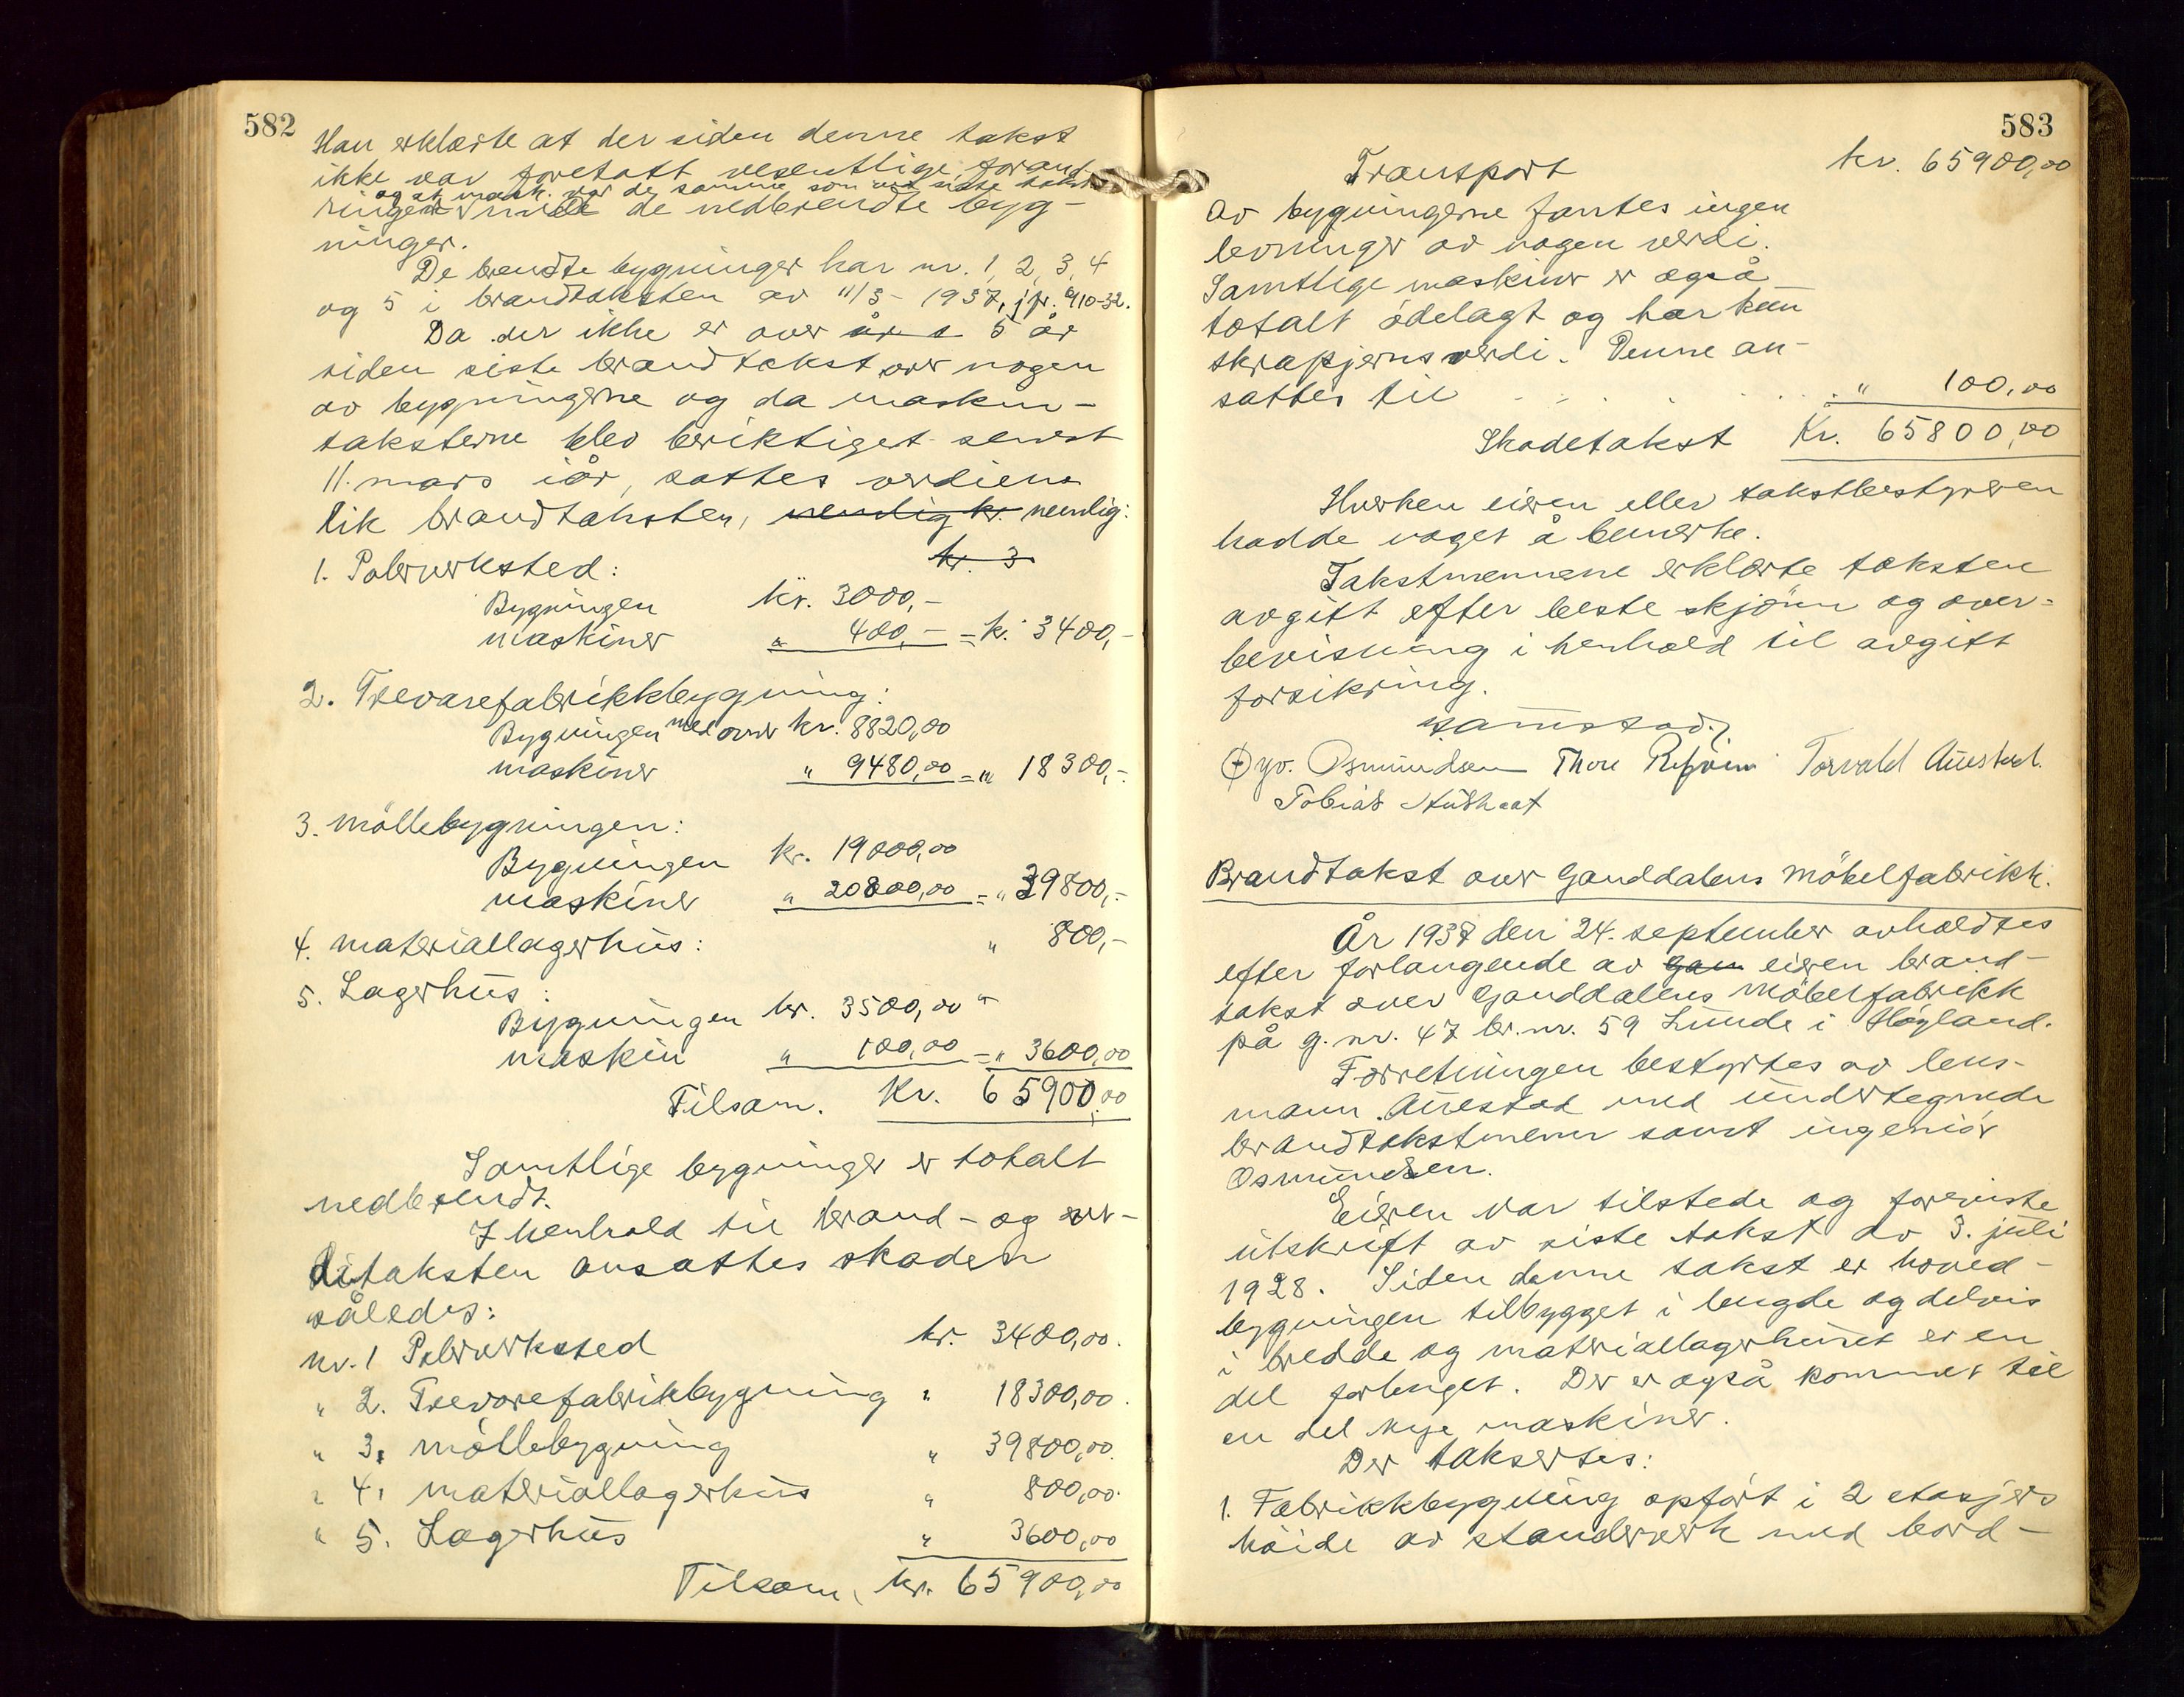 582
Han erklærte at der siden denne takst
ikke var foretatt vesentlige forand-
og at mask. var de samme som ved siste takst
ringer med de nedbrendte byg-
ninger.
De brendte bygninger har nr. 1, 2, 3, 4
og 5 i brandtaksten av 11/3 - 1937, jfr. 9/10-32.
Da der ikke er over år s 5 år
siden siste brandtakst over nogen
av bygningerne og da maskin-
taksterne blev beriktiget senest
11. mars iår, sattes verdiene
lik brandtaksten, nemlig kr. nemlig:
kr. 3
1. Polerverksted:
Bygningen kr. 3000,-
maskiner " 400,- = k. 3400,-
2. Trevarefabrikkbygning:
Bygningen med ovner kr. 8820,00
maskiner " 9480,00 = " 18300,-
3. Möllebygningen:
Bygningen kr. 19000,00
maskiner " 20800,00 = " 39800,-
4. materiallagerhus: " 800,-
5. Lagerhus:
Bygningen kr. 3500,00 "
maskin " 100,00 = " 3600,00
Tilsam. Kr. 65900,00
Samtlige bygninger er totalt
nedbrendt.
I henhold til brand- og ver-
ditaksten ansattes skaden
således:
nr. 1 Polerverksted kr. 3400,00.
" 2. Trevarefabrikbygning " 18300,00.
" 3. möllebygning " 39800,00.
" 4. materiallagerhus " 800,00.
" 5. Lagerhus " 3600,00
Tilsam. kr. 65900,00
583
Transport kr. 65900,00
Av bygningerne fantes ingen
levninger av nogen verdi.
Samtlige maskiner er også
totalt ödelagt og har kun
skrapjernsverdi. Denne an-
sattes til . . . . . . " 100,00
Skadetakst Kr. 65800,00
Hverken eieren eller takstbestyreren
hadde noget å bemerke.
Takstmennene erklærte taksten
avgitt efter beste skjönn og over-
bevisning i henhold til avgitt
forsikring.
Öyv. Osmundsen Thore Torvald Auestad.
Tobias
Brandtakst over Ganddalens Möbelfabrikk.
År 1937 den 24. september avholdtes
efter forlangende av Gan eieren brand-
takst over Ganddalens Möbelfabrikk
på g.nr. 47 br.nr. 59 Lunde i Högland.
Forretningen bestyrtes av lens-
mann Auestad med undertegnede
brandtakstmenn samt ingeniör
Osmundsen.
Eieren var tilstede og foreviste
utskrift av siste takst av 3. juli
1928. Siden denne takst er hoved-
bygningen tilbygget i lengde og delvis
i bredde og materiallagerhuset er en
del forlenget. Der er også kommet til
en del nye maskiner.
Der taksertes:
1. Fabrikkbygning opfört i 2 etasjers
höide av standerverk med bord-